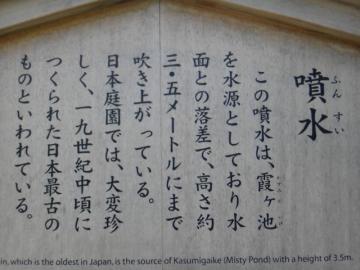 噴水
ふんすい
この噴水は、霞ヶ池
を水源としており水
面との落差で、高さ約
三・五メートルにまで
吹き上がっている。
日本庭園では、大変珍
しく、一九世紀中頃に
つくられた日本最古の
ものといわれている。
in, which is the oldest in Japan, is the source of Kasumigaike (Misty Pond) with a height of 3.5m.